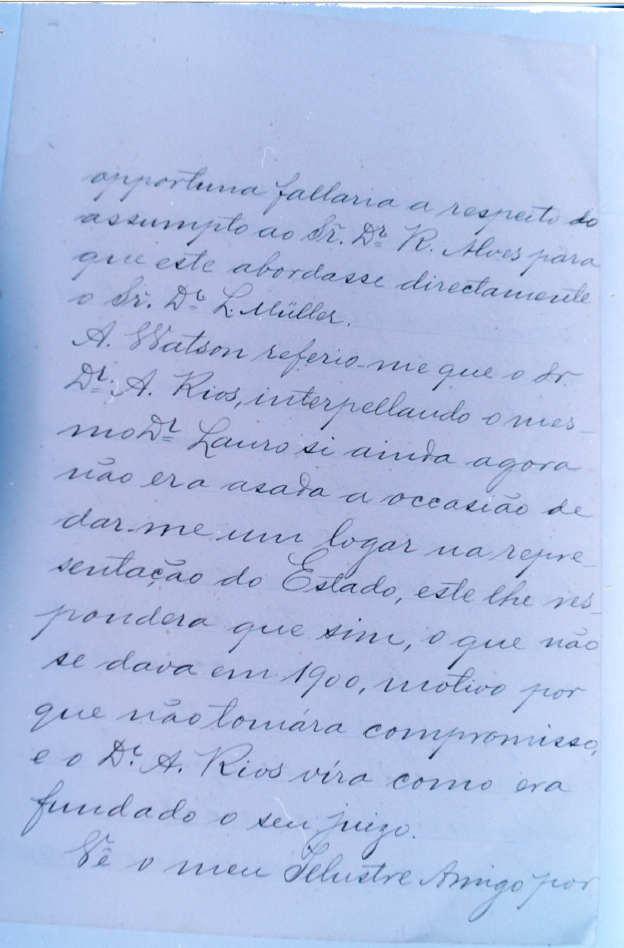 opportuna fallaria a respeito do
assumpto ao Sr. Dr. R. Alves para
que este abordasse directamente
o Sr. Dr. L. Müller.
A. Watson referio-me que o Sr.
Dr. A. Rios, interpellando o mes-
mo Dr. Lauro si ainda agora
não era asada a occasião de
dar-me um logar na repre-
sentação do Estado, este lhe res-
pondera que sim, o que não
se dava em 1900, motivo por
que não tomára compromisso,
e o Dr. A. Rios víra como era
fundado o seu juizo.
Vê o meu Illustre Amigo por